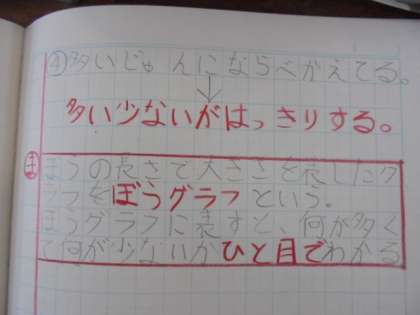 ④多いじゅんにならべかえてる。
↓
多い少ないがはっきりする。
ま
ぼうの長さで大きさを表したグ
ラフをぼうグラフという。
ぼうグラフに表すと、何が多く
て何が少ないかひと目でわかる